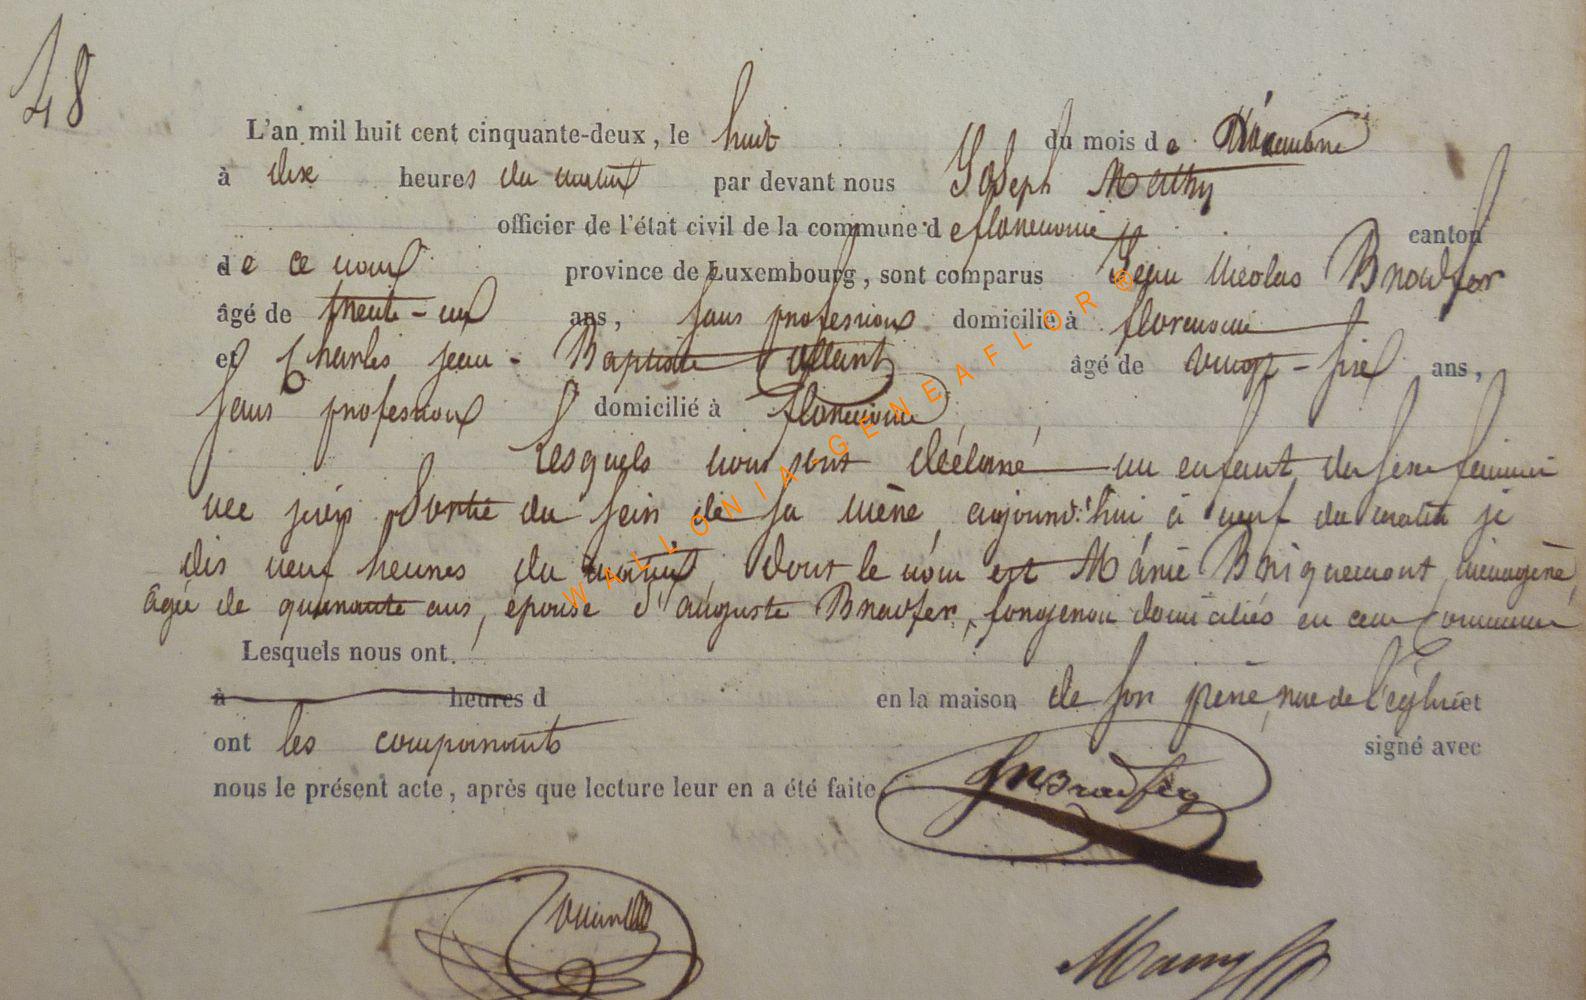 48
L'an mil huit cent cinquante-deux, le huit du mois de Décembre
à dix heures du matin par devant nous Joseph Mathy
officier de l'état civil de la commune de florenville canton
de ce nom province de Luxembourg, sont comparus Jean Nicolas Bradfer
âgé de trente-un ans, sans profession domicilié à florenville
et Charles Jean-Baptiste âgé de vingt-six ans,
sans profession domicilié à florenville
Lesquels nous ont déclaré un enfant du sexe féminin
née Sortie du sein de sa mère aujourd'hui à neuf du matin je
dis neuf heures du matin, dont le nom est Marie Briquemont, ménagère,
âgée de quarante ans, épouse d'auguste Bradfer, domiciliés en cette Commune
Lesquels nous ont
à heures d en la maison de son père, rue de l'église et
ont les comparants signé avec
nous le présent acte, après que lecture leur en a été faite.
JNBradfer
WALLONIA-GENEAFLOR®